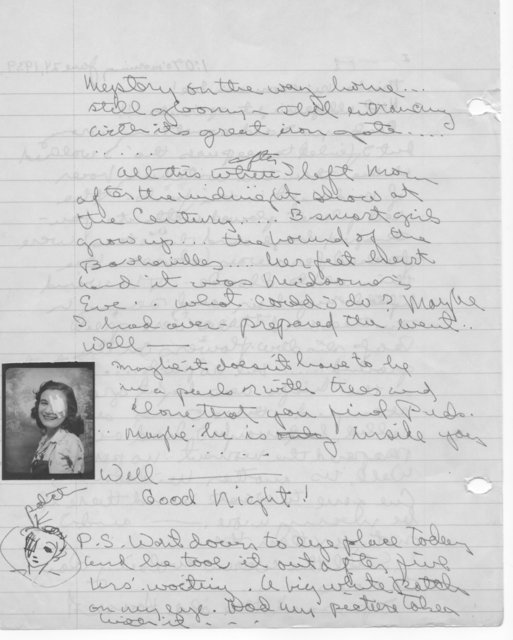 Mystery on the way home...
still gloomy - still entrancing
with its great iron gate.....
. . . . . after
All this when I left Mom
after the midnight show at
the Century... 3 smart girls
grow up... the hound of the
Baskervilles... her feet hurt
and it was Midsomer's
Eve. what could I do? Maybe
I had over-prepared the event..
Well —
maybe it doesn't have to be
in a park or with trees and
that you find Pudo.
Maybe he is only inside you
.
Well —
Good Night!
patch
P.S. Went down to eye place today
and he took it out after five
hrs' waiting. A big white patch
on my eye. Had my picture taken
. . .